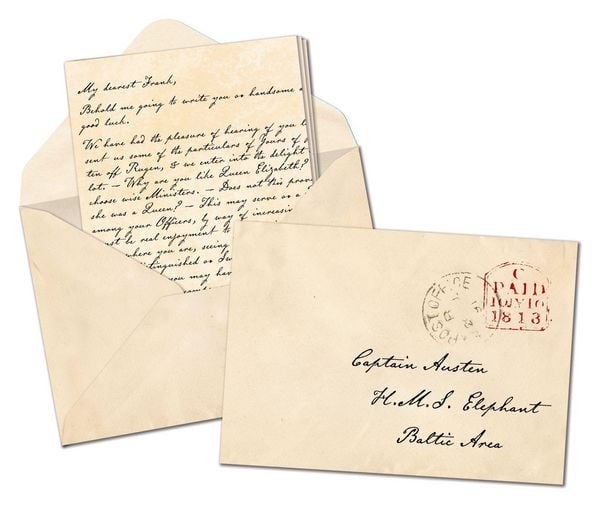 My dearest Frank,
Behold me going to write you as handsome a
good luck.
We have had the pleasure of hearing of you l
sent us some of the particulars of Yours of
ten off Rugen, & we enter into the delight
lot. — Why are you like Queen Elizabeth?
choose wise Ministers. — Does not this prov
she was a Queen? — This may serve as a
among your Officers, by way of increasin
st be real enjoyment to
where you are, seeing
istinguished as Swe
you may have
POST OFFICE
C
PAID
1813
Captain Austen
H.M.S. Elephant
Baltic Area